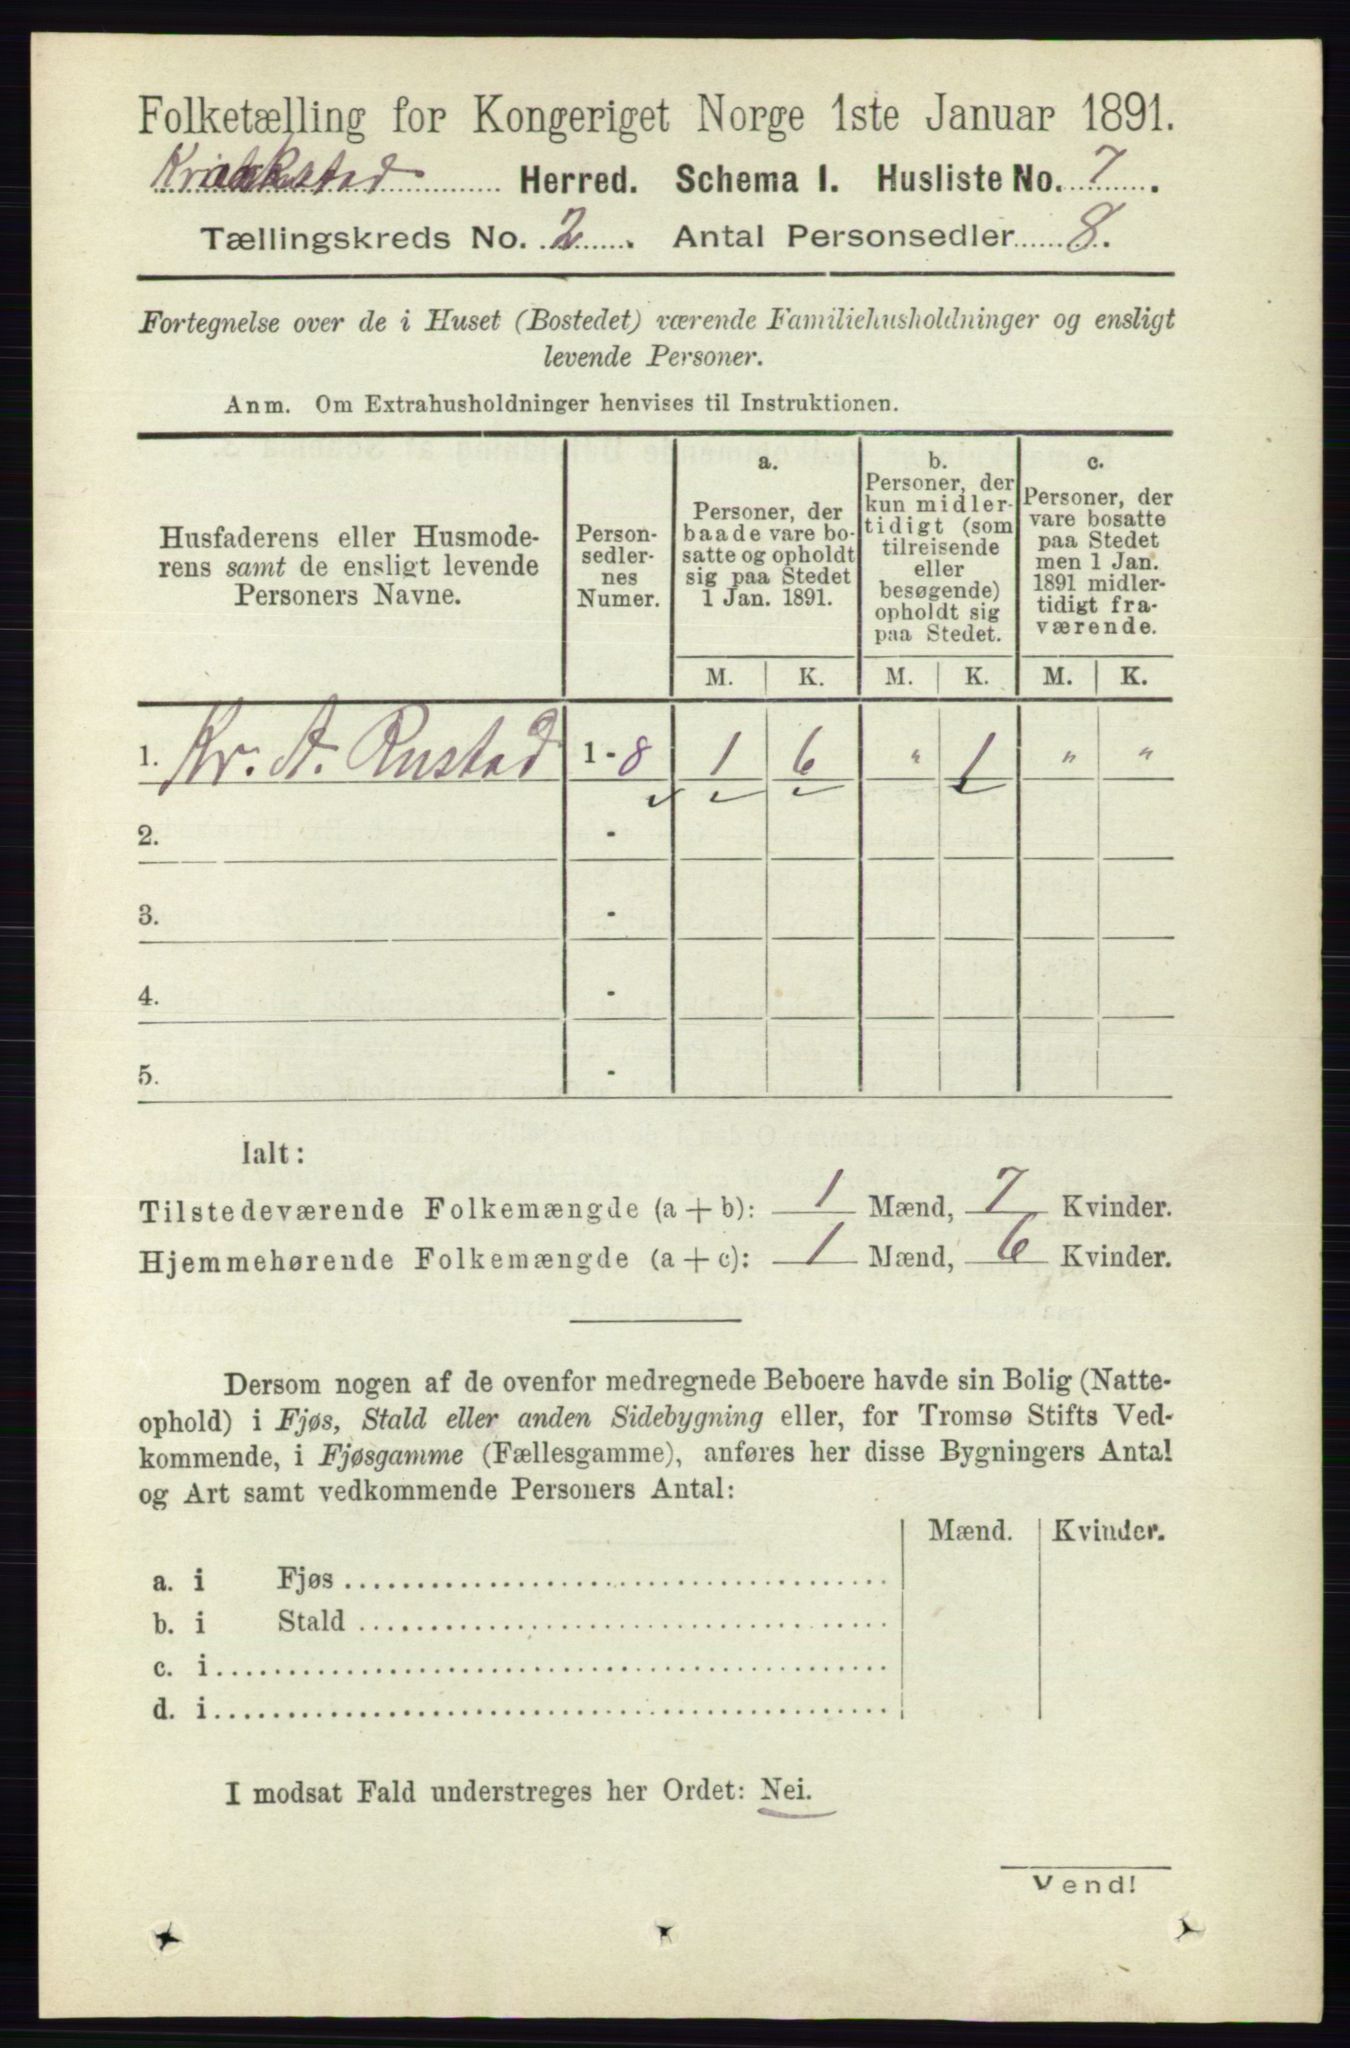 Folketælling for Kongeriget Norge 1ste Januar 1891.
Kraakstad Herred. Schema I. Husliste No. 7.
Tællingskreds No. 2. Antal Personsedler 8.
Fortegnelse over de i Huset (Bostedet) værende Familiehusholdninger og ensligt
levende Personer.
Anm. Om Extrahusholdninger henvises til Instruktionen.
Husfaderens eller Husmode-
rens samt de ensligt levende
Personers Navne.
Person-
sedler-
nes
Numer.
a.
Personer, der
baade vare bo-
satte og opholdt
sig paa Stedet
1 Jan. 1891.
b.
Personer, der
kun midler-
tidigt (som
tilreisende
eller
besøgende)
opholdt sig
paa Stedet.
c.
Personer, der
vare bosatte
paa Stedet
men 1 Jan.
1891 midler-
tidigt fra-
værende.
M. K. M. K. M. K.
1. Kr. A. Rustad 1 - 8 1 6 " 1 " "
2. -
3. -
4. -
5. -
Ialt:
Tilstedeværende Folkemængde (a + b): 1 Mænd, 7 Kvinder.
Hjemmehørende Folkemængde (a + c): 1 Mænd, 6 Kvinder.
Dersom nogen af de ovenfor medregnede Beboere havde sin Bolig (Natte-
ophold) i Fjøs, Stald eller anden Sidebygning eller, for Tromsø Stifts Ved-
kommende, i Fjøsgamme (Fællesgamme), anføres her disse Bygningers Antal
og Art samt vedkommende Personers Antal:
Mænd. Kvinder.
a. i Fjøs
b. i Stald
c. i
d. i
I modsat Fald understreges her Ordet: Nei.
Vend!